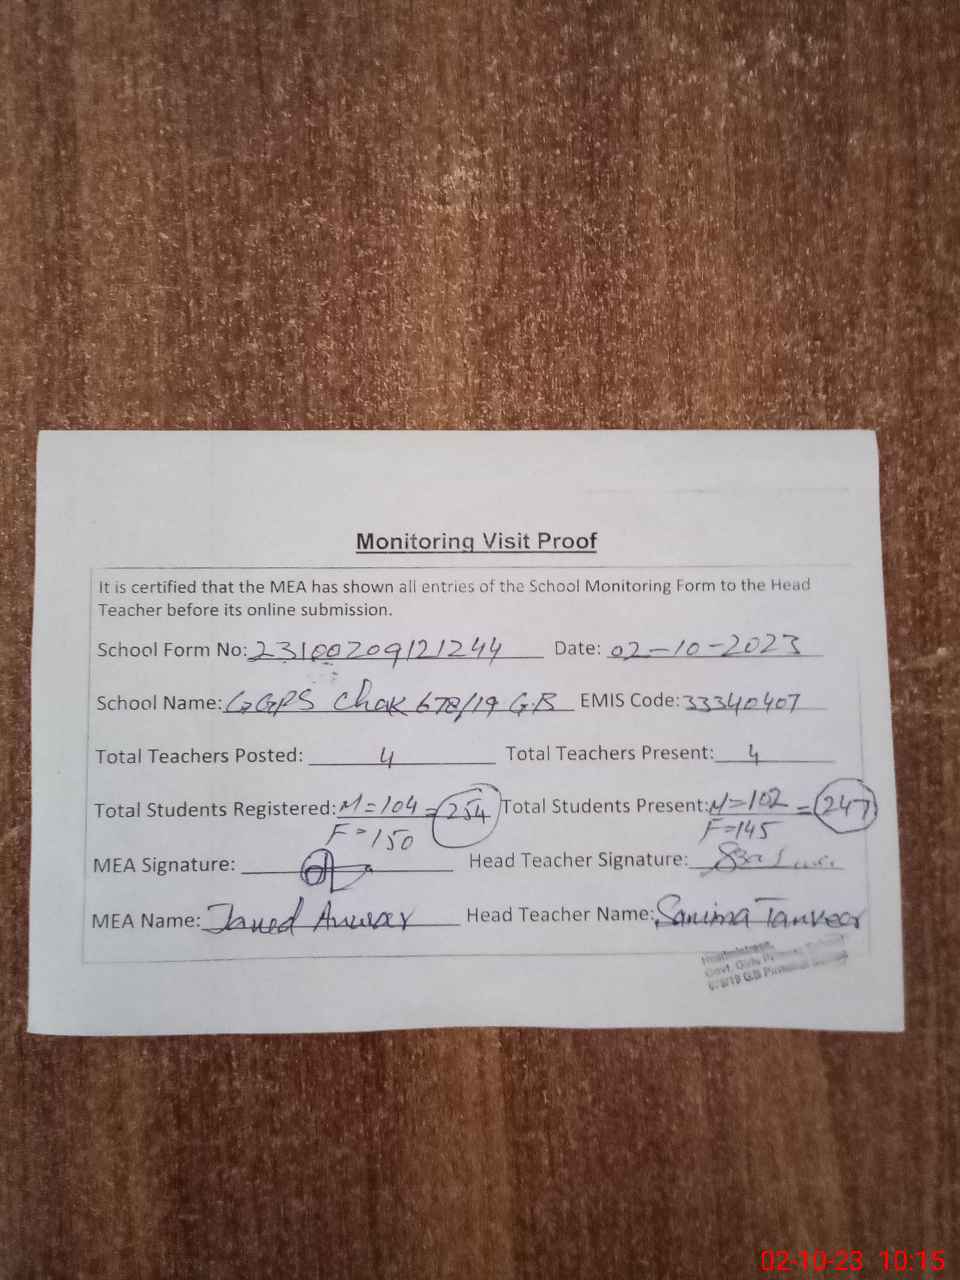 Monitoring Visit Proof
It is certified that the MEA has shown all entries of the School Monitoring Form to the Head
Teacher before its online submission.
School Form No: 23100209121244 Date: 02-10-2023
School Name: GGPS Chak 678/19 GB EMIS Code: 33340407
Total Teachers Posted: 4 Total Teachers Present: 4
Total Students Registered: M=104 = 254 Total Students Present: M=102 = 247
F=150 F=145
MEA Signature: Head Teacher Signature:
MEA Name: Javed Anwar Head Teacher Name: Samina Tanveer
Headmistress
Govt. Girls Primary School
678/19 G.B
02-10-23 10:15